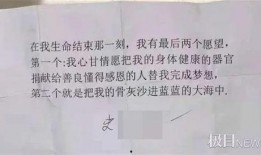 在我生命结束那一刻，我有最后两个愿望，
第一个:我心甘情愿把我的身体健康的器官
捐献给善良懂得感恩的人替我完成梦想，
第二个就是把我的骨灰沙进蓝蓝的大海中.
史
极目新闻